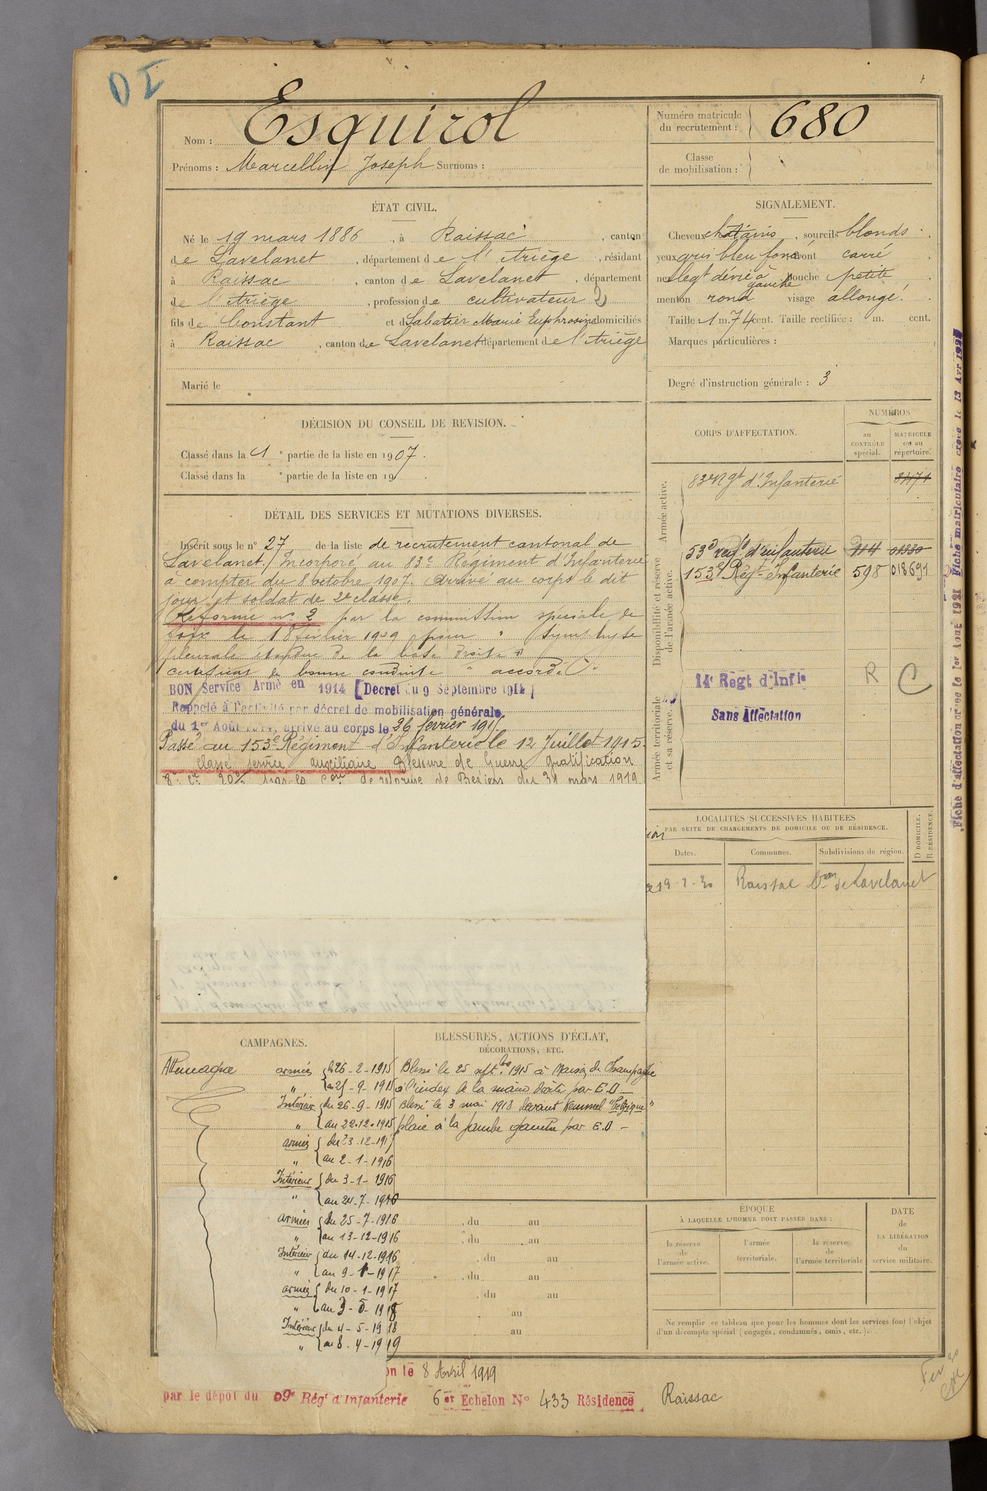 Nom : Esquirol
Prénoms : Marcellin Joseph Surnoms :
Numéro matricule
du recrutement : 680
Classe
de mobilisation :
ÉTAT CIVIL.
Né le 19 mars 1886, à Raissac, canton
de Lavelanet, département de l'Ariège, résidant
à Raissac, canton de Lavelanet, département
de l'Ariège, profession de cultivateur
fils de Constant et de Sabatier Marie Euphrosine domiciliés
à Raissac, canton de Lavelanet département de l'Ariège
Marié le
SIGNALEMENT.
Cheveux chatains, sourcils blonds.
yeux gris bleu foncé front carré
nez légt dévié à gauche bouche petite
menton rond visage allongé.
Taille : 1 m. 74 cent. Taille rectifiée : m. cent.
Marques particulières :
Degré d'instruction générale : 3
DÉCISION DU CONSEIL DE REVISION.
Classé dans la 1e partie de la liste en 1907.
Classé dans la e partie de la liste en 19
DÉTAIL DES SERVICES ET MUTATIONS DIVERSES.
Inscrit sous le n° 27 de la liste de recrutement cantonal de
Lavelanet. Incorporé au 83e Régiment d'Infanterie
à compter du 8 octobre 1907. Arrivé au corps le dit
jour et soldat de 2e classe.
Réformé n° 2 par la commission spéciale de
Foix le 18 février 1909 pour "Symphyse
pleurale étendue de la base droite"
certificat de bonne conduite "accordé"
BON Service Armé en 1914 [Decret du 9 Septembre 1914]
Rappelé à l'activité par décret de mobilisation générale
du 1er Août 1914, arrivé au corps le 26 février 191
Passé au 153e Régiment d'Infanterie le 12 Juillet 1915.
classé service auxiliaire Blessure de Guerre gratification
de réforme de Béziers du 31 mars 1919
CORPS D'AFFECTATION.
NUMÉROS
au
CONTRÔLE
spécial.
MATRICULE
ou au
répertoire.
Armée active.
83e Rgt d'Infanterie
Disponibilité et réserve
de l'armée active.
53e regt d'infanterie 01330
153e Régt Infanterie 598 018691
Armée territoriale
et sa réserve.
14e Régt d'Infie R C
Sans Affectation
LOCALITÉS SUCCESSIVES HABITÉES
PAR SUITE DE CHANGEMENTS DE DOMICILE OU DE RÉSIDENCE.
Dates. Communes. Subdivisions de région. D DOMICILE. R RÉSIDENCE.
Raissac Con de Lavelanet
CAMPAGNES.
Allemagne
armées du 26-2-1915
" au 25-9-1915
Intérieur du 26-9-1915
" au 22-12-1915
armées du 23-12-191
" au 2-1-1916
Intérieur du 3-1-1916
" au 24-7-1916
armées du 25-7-1916
" au 13-12-1916
Intérieur du 14-12-1916
" au 9-1-1917
armées du 10-1-1917
" au 3-5-1918
Intérieur du 4-5-1918
" au 8-4-1919
BLESSURES, ACTIONS D'ÉCLAT,
DÉCORATIONS, ETC.
Blessé le 25 septbre 1915 à Maisons de Champagne
à l'index de la main droite par E.O -
Blessé le 3 mai 1918 devant Kemmel "Belgique"
plaie à la jambe gauche par E.O -
, du au
, du au
, du au
, du au
, du au
au
au
ÉPOQUE
À LAQUELLE L'HOMME DOIT PASSER DANS :
la réserve
de
l'armée active.
l'armée
territoriale.
la réserve
de
l'armée territoriale
DATE
de
LA LIBÉRATION
du
service militaire.
Ne remplir ce tableau que pour les hommes dont les services font l'objet
d'un décompte spécial (engagés, condamnés, omis, etc.).
on le 8 Avril 1919
par le dépot du 9e Régt d'Infanterie 6er Echelon N° 433 Résidence Raissac